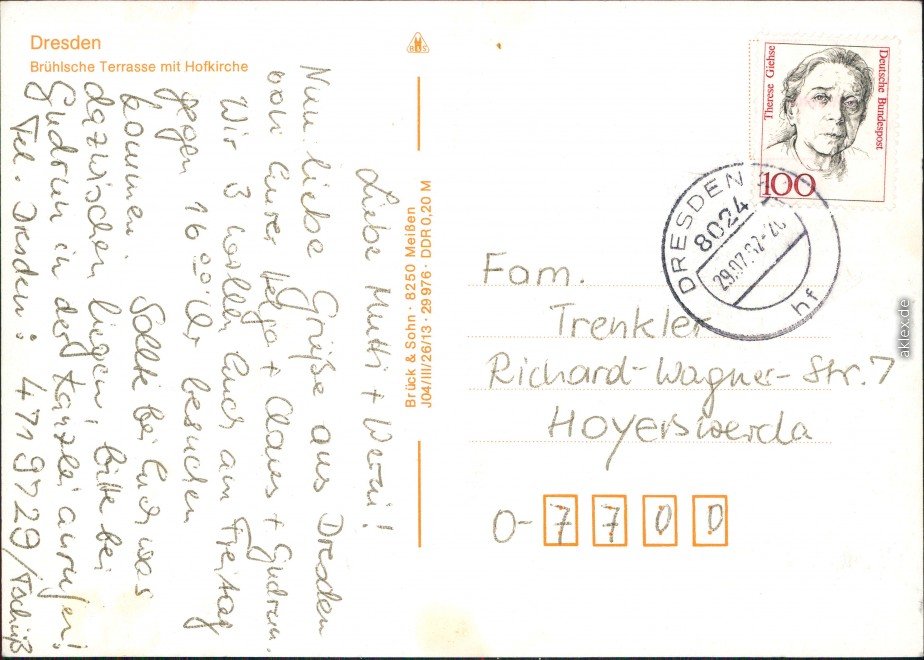 Dresden
Brühlsche Terrasse mit Hofkirche
Liebe Mutti + Werni!
Nun liebe Grüße aus Dresden
von Eurer Helga + Claus + Gudrun.
Wir 3 wollen Euch am Freitag
gegen 16 00 Uhr besuchen
kommen. Sollte bei Euch was
dazwischen liegen, bitte bei
Gudrun in der Kanzlei anrufen!
Tel. Dresden: 4719729 / Tschüß
Brück & Sohn · 8250 Meißen
J04/III/26/13 · 29 976 · DDR 0,20 M
Therese Giehse
Deutsche Bundespost
100
DRESDEN
8024
hf
Fam.
Trenkler
Richard-Wagner-Str. 7
Hoyerswerda
O-7700
aklex.de